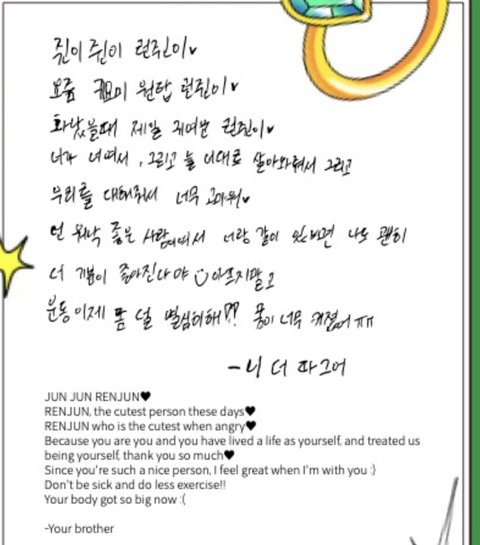 쥔이쥔이 런쥔이♥
요즘 귀요미 원탑 런쥔이♥
화났을때 제일 귀여븐 런쥔이♥
너가 너여서, 그리고 늘 너대로 살아와줘서 그리고
우리를 대해줘서 너무 고마워♥
넌 워낙 좋은 사람이여서 너랑 같이 있으면 나도 괜히
더 기분이 좋아진다야 :) 아프지말고
운동 이제 좀 덜 열심히해!! 몸이 너무 커졌어 ㅠㅠ
- 니
JUN JUN RENJUN♥
RENJUN, the cutest person these days♥
RENJUN who is the cutest when angry♥
Because you are you and you have lived a life as yourself, and treated us
being yourself, thank you so much♥
Since you're such a nice person, I feel great when I'm with you :)
Don't be sick and do less exercise!!
Your body got so big now :(
-Your brother